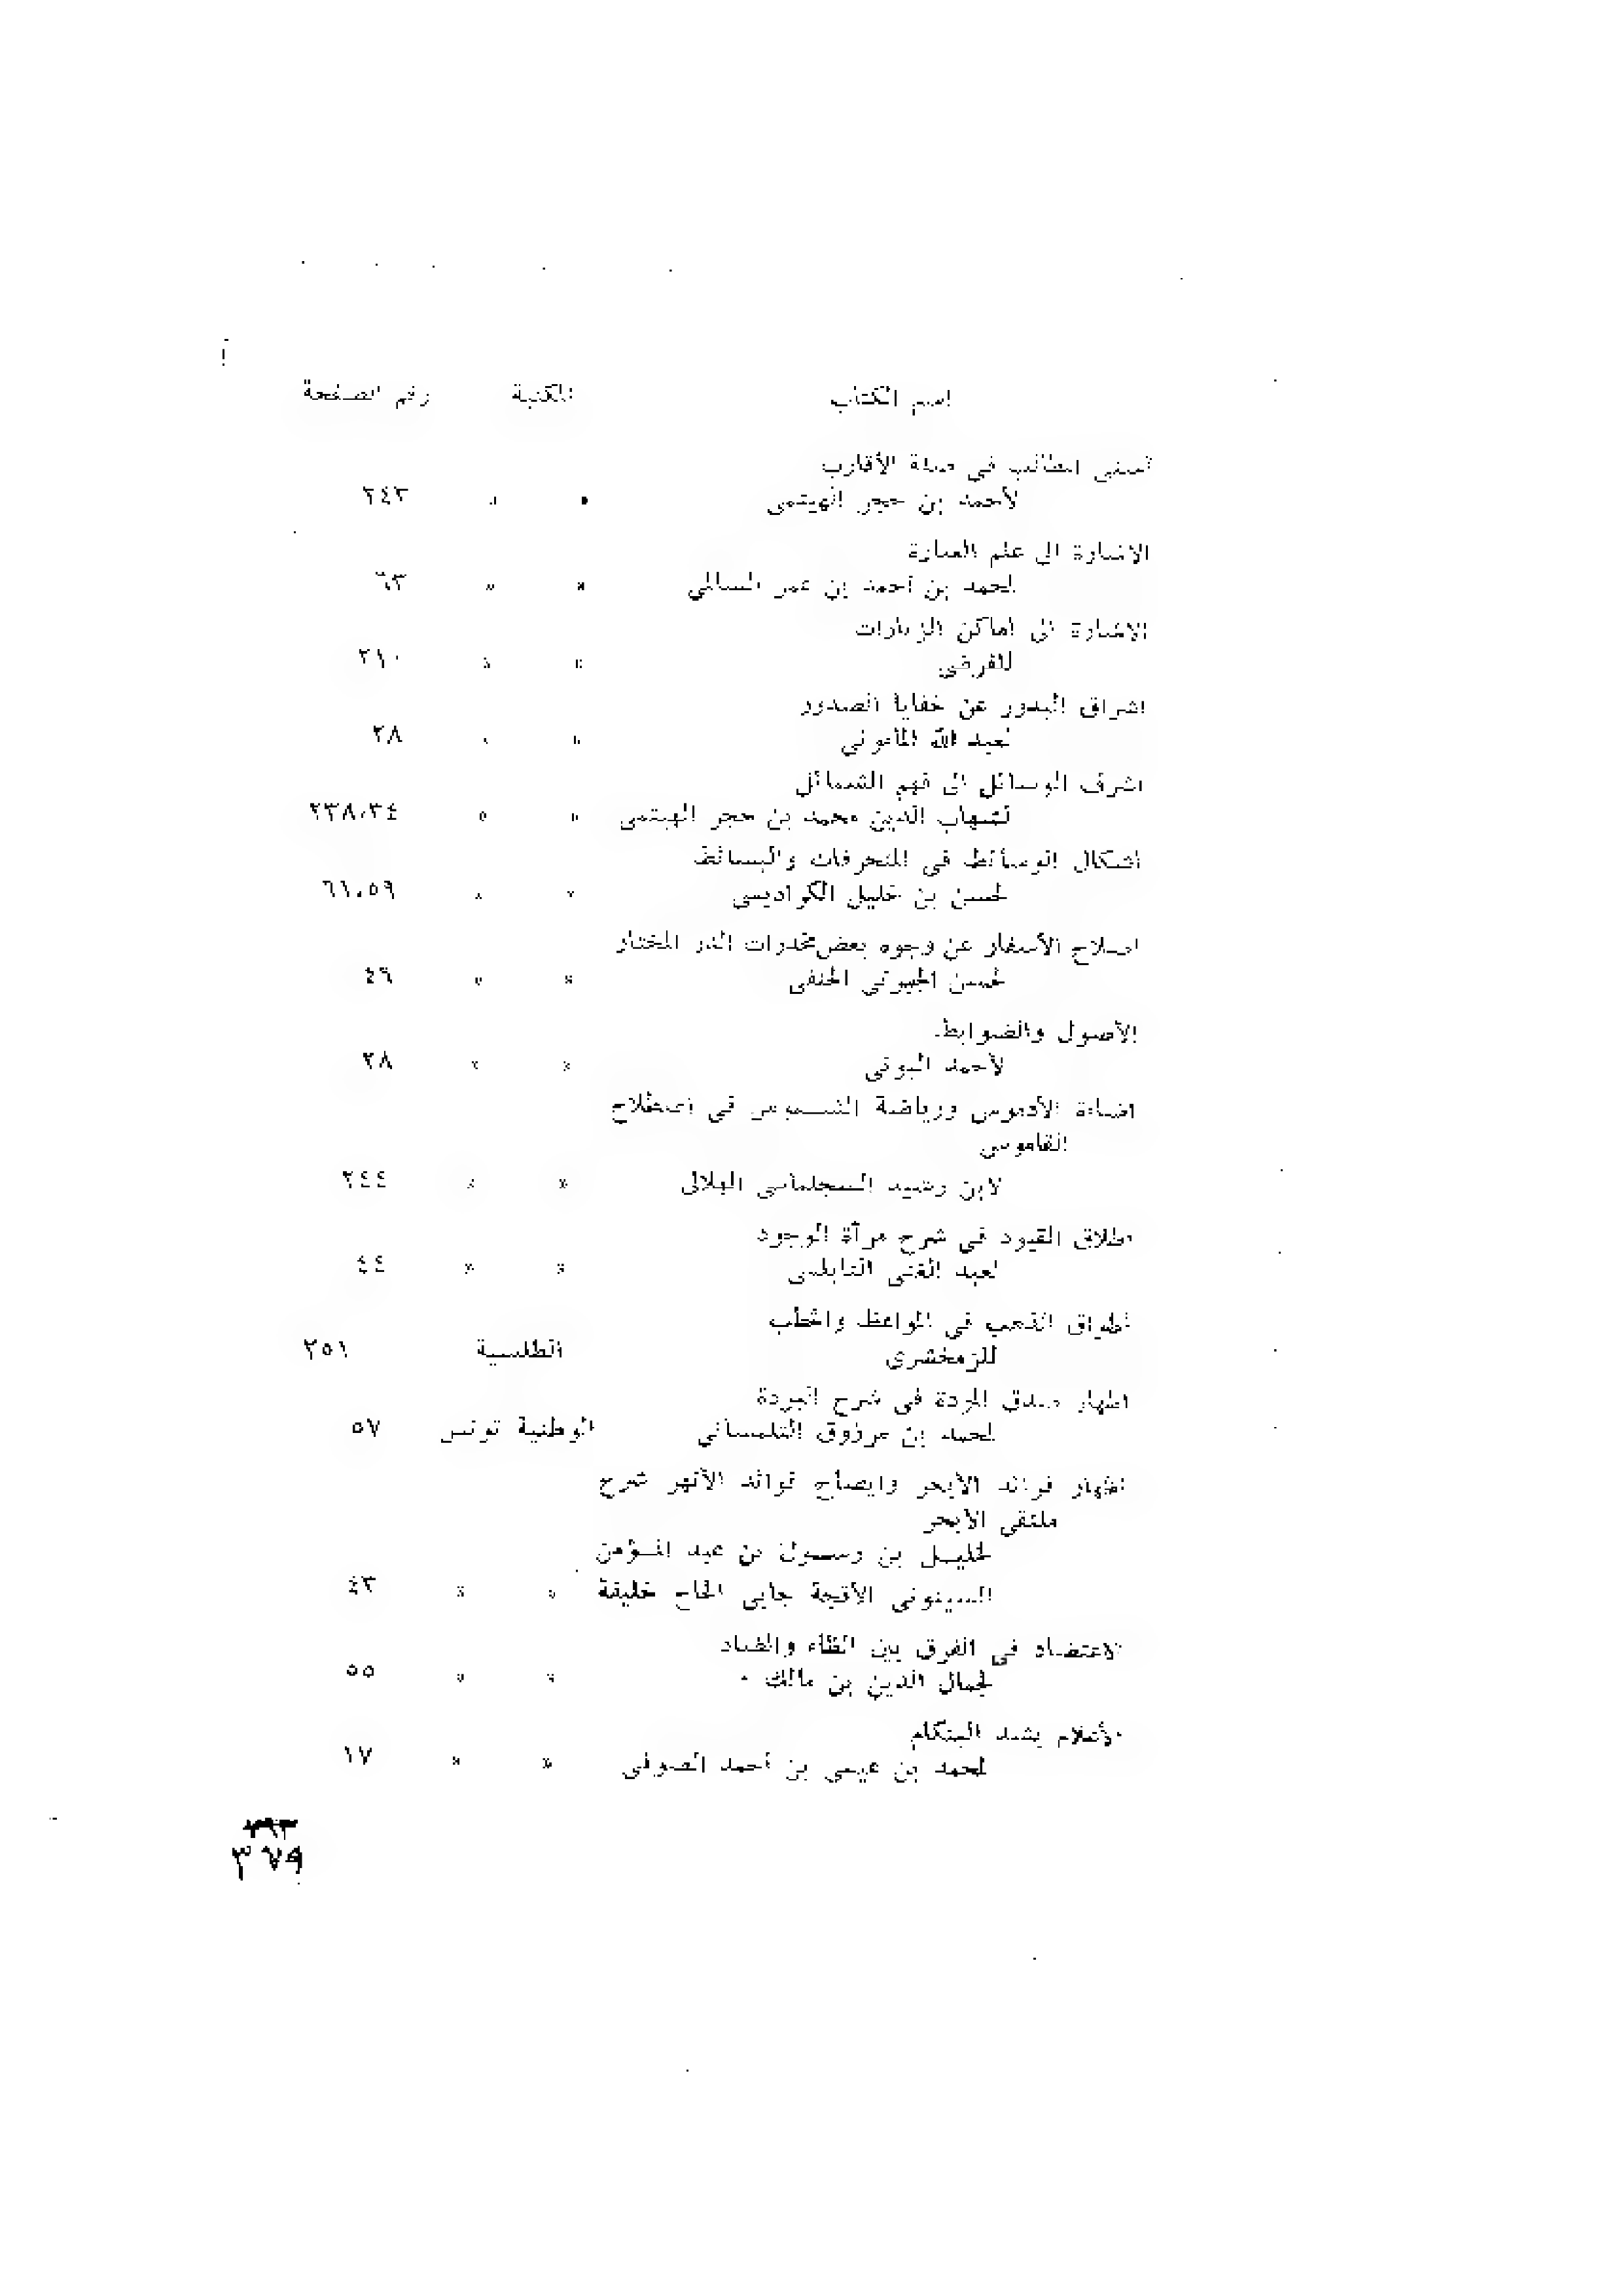 اسم الكتاب المكتبة رقم الصفحة
أسنى المطالب فى صلة الأقارب
لأحمد بن حجر الهيتمى » » ٢٤٣
الاشارة الى علم العبارة
لمحمد بن أحمد بن عمر السالمى » » ٦٣
الاشارة الى أماكن الزيارات
للفرضى » » ٢١٠
اشراق البدور عن خفايا الصدور
لعبد الله المأمونى » » ٢٨
أشرف الوسائل الى فهم الشمائل
لشهاب الدين محمد بن حجر الهيتمى » » ٢٣٨،٣٤
أشكال الوسائط فى المنحرفات والبسائط
لحسن بن خليل الكراديسى » » ٦٦،٥٩
اصلاح الأسفار عن وجوه بعض مخدرات الدر المختار
لحسن الجبرتى الحنفى » » ٤٩
الأصول والضوابط
لأحمد البونى » » ٢٨
اضاءة الأدموس ورياضة الشموس فى اصطلاح
القاموس
لابن رشيد السجلماسى الهلالى » » ٢٤٤
اطلاق القيود فى شرح مرآة الوجود
لعبد الغنى النابلسى » » ٤٤
أطواق الذهب فى المواعظ والخطب
للزمخشرى الطلسية ٢٥١
اظهار صدق المودة فى شرح البردة
لمحمد بن مرزوق التلمسانى الوطنية تونس ٥٧
اظهار فرائد الأبحر وايضاح فوائد الأنهر شرح
ملتقى الأبحر
لخليل بن رسول بن عبد المؤمن
السينوبى الأقجة جابى الحاج خليفة » » ٤٣
الاعتضاد فى الفرق بين الظاء والضاد
لجمال الدين بن مالك . » » ٥٥
الأعلام بشد البنكام
لمحمد بن عيسى بن أحمد الصوفى » » ١٧
٣٧٩